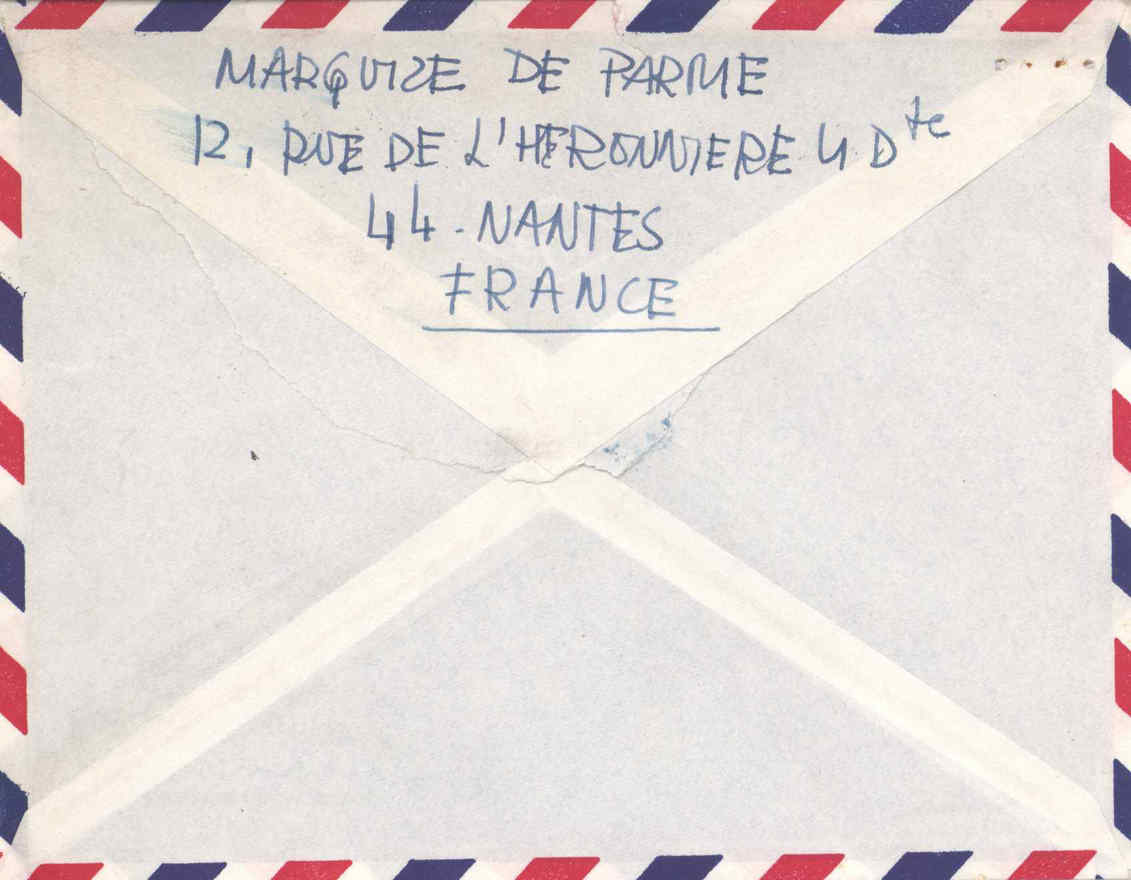 MARQUIZE DE PARME
12, RUE DE L'HERONNIERE 4 Dte
44-NANTES
FRANCE